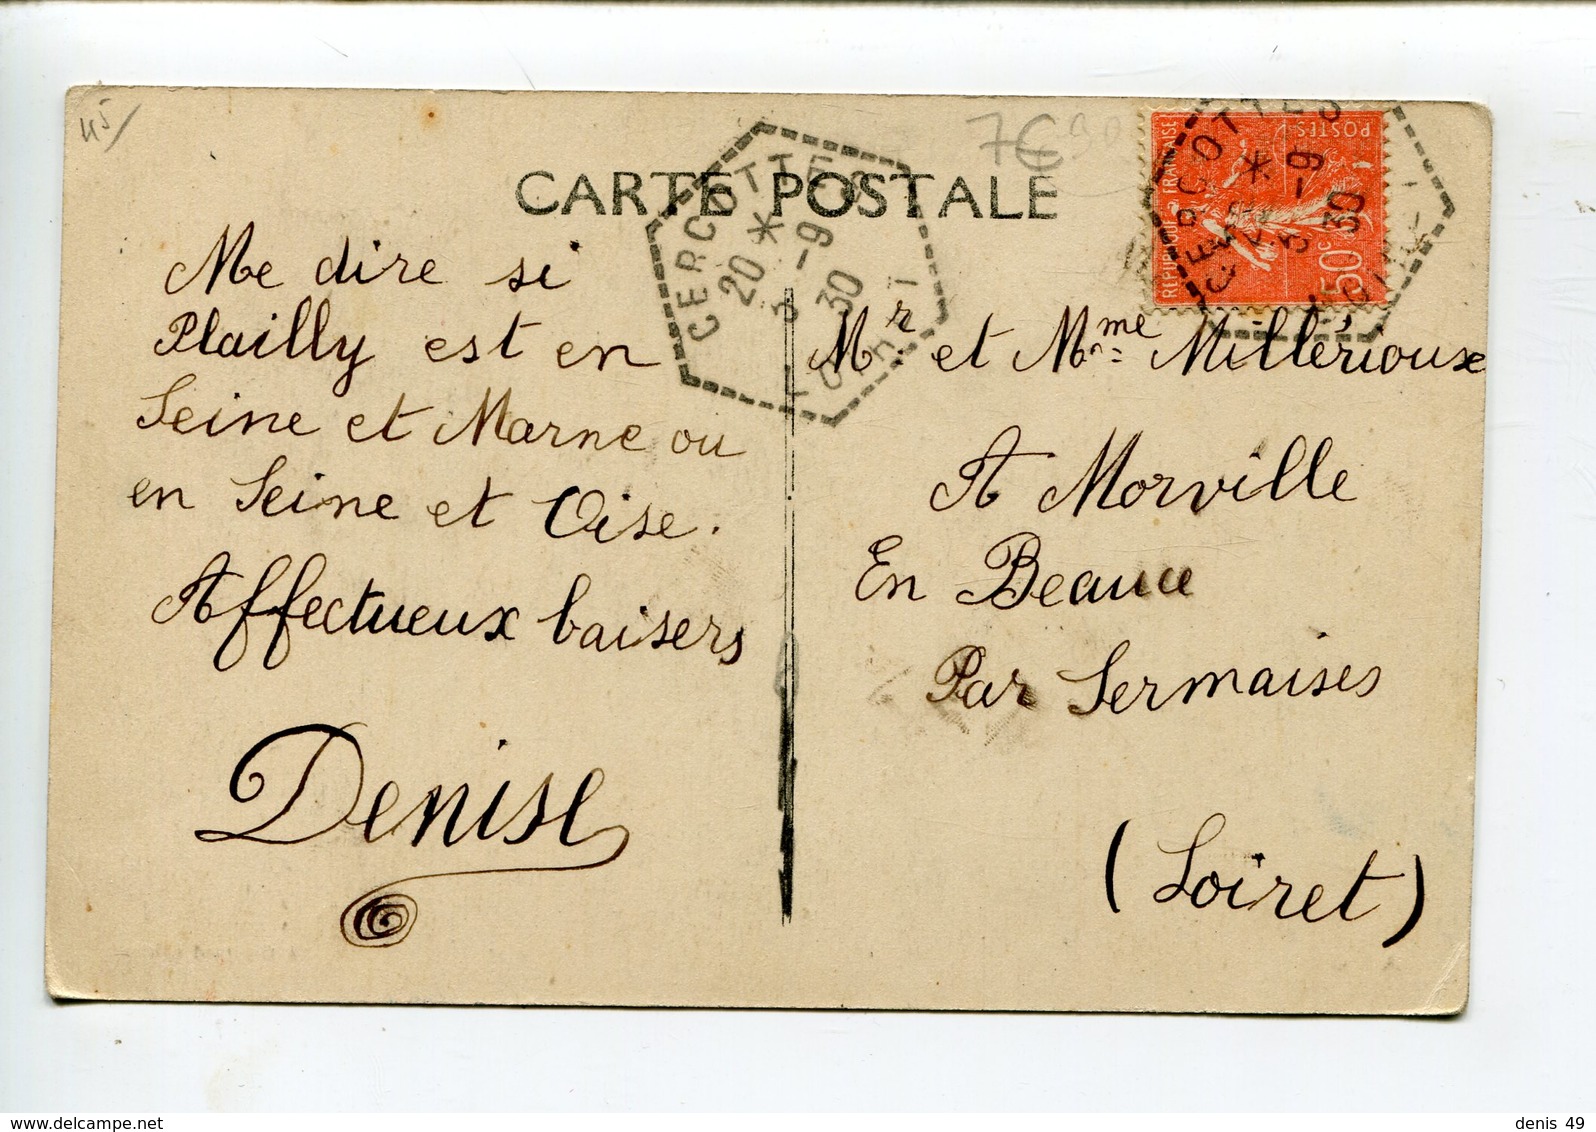 45/
7€90
CARTE POSTALE
CERCOTTES
20 * 3 -9 30
LOIRET
REPUBLIQUE FRANCAISE
POSTES
50c
CERCOTTES
20 * 3 -9 30
Me dire si
Plailly est en
Seine et Marne ou
en Seine et Oise.
Affectueux baisers
Denise
Mr. et Mme Millérioux
A Morville
En Beauce
Par Sermaises
(Loiret)
denis 49